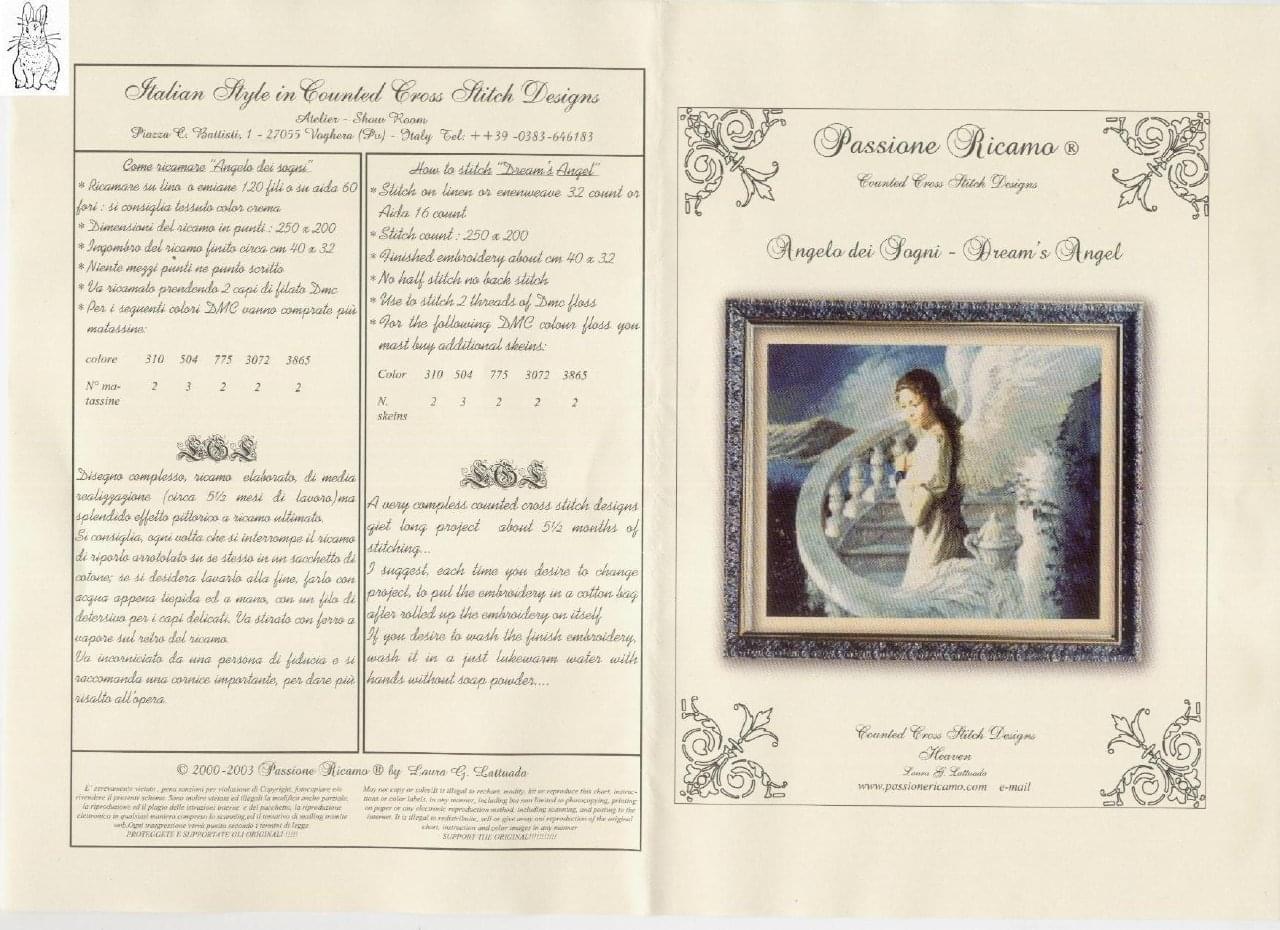 Italian Style in Counted Cross Stitch Designs
Atelier - Show Room
Piazza C. Battisti, 1 - 27055 Voghera (Pv) - Italy Tel: ++39 -0383-646183
Come ricamare "Angelo dei sogni"
* Ricamare su lino o emiane 120 fili o su aida 60
fori : si consiglia tessuto color crema
* Dimensioni del ricamo in punti : 250 x 200
* Ingombro del ricamo finito circa cm 40 x 32
* Niente mezzi punti ne punto scritto
* Va ricamato prendendo 2 capi di filato Dmc
* Per i seguenti colori DMC vanno comprate più
matassine:
colore 310 504 775 3072 3865
N° ma- 2 3 2 2 2
tassine
Disegno complesso, ricamo elaborato, di media
realizzazione (circa 5½ mesi di lavoro)ma
splendido effetto pittorico a ricamo ultimato.
Si consiglia, ogni volta che si interrompe il ricamo
di riporlo arrotolato su se stesso in un sacchetto di
cotone; se si desidera lavarlo alla fine, farlo con
acqua appena tiepida ed a mano, con un filo di
detersivo per i capi delicati. Va stirato con ferro a
vapore sul retro del ricamo.
Va incorniciato da una persona di fiducia e si
raccomanda una cornice importante, per dare più
risalto all'opera.
How to stitch "Dream's Angel"
* Stitch on linen or enenweave 32 count or
Aida 16 count
* Stitch count : 250 x 200
* Finished embroidery about cm 40 x 32
* No half stitch no back stitch
* Use to stitch 2 threads of Dmc floss
* For the following DMC colour floss you
mast buy additional skeins:
Color 310 504 775 3072 3865
N. 2 3 2 2 2
skeins
A very compless counted cross stitch designs
qiet long project about 5½ months of
stitching...
I suggest, each time you desire to change
project, to put the embroidery in a cotton bag
after rolled up the embroidery on itself
If you desire to wash the finish embroidery,
wash it in a just lukewarm water with
hands without soap powder....
© 2000-2003 Passione Ricamo ® by Laura G. Lattuada
E' severamente vietato , pena sanzioni per violazione di Copyright, fotocopiare e/o
rivendere il presente schema. Sono inoltre vietati ed illegali la modifica anche parziale,
la riproduzione ed il plagio delle istruzioni interne e del pacchetto, la riproduzione
elettronica in qualsiasi maniera compreso lo scanning ed il tentativo di mailing tramite
web.Ogni trasgressione verrà punita secondo i termini di legge
PROTEGGETE E SUPPORTATE GLI ORIGINALI !!!!!
May not copy or color.It is illegal to rechart, modify, kit or reproduce this chart, instruc-
tions or color labels, in any manner, including but non limited to photocopying, printing
on paper or any electronic reproduction method, including scanning, and posting to the
internet. It is illegal to redistribute, sell or give away any reproduction of the original
chart, instruction and color images in any manner
SUPPORT THE ORIGINAL!!!!!!!!!!
Passione Ricamo ®
Counted Cross Stitch Designs
Angelo dei Sogni - Dream's Angel
Counted Cross Stitch Designs
Heaven
Laura G. Lattuada
www.passionericamo.com e-mail